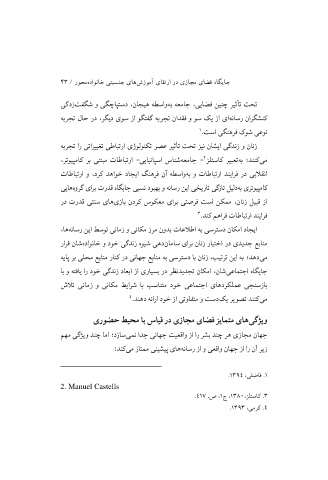 جایگاه فضای مجازی در ارتقای آموزش‌های جنسیتی خانواده‌محور / ۴۳
تحت تأثیر چنین فضایی، جامعه به‌واسطه هیجان، دستپاچگی و شگفت‌زدگی
کنشگران رسانه‌ای از یک سو و فقدان تجربه گفتگو از سوی دیگر، در حال تجربه
نوعی شوک فرهنگی است.۱
زنان و زندگی ایشان نیز تحت تأثیر عصر تکنولوژی ارتباطی تغییراتی را تجربه
می‌کنند؛ به‌تعبیر کاستلز۲- جامعه‌شناس اسپانیایی- ارتباطات مبتنی بر کامپیوتر،
انقلابی در فرایند ارتباطات و به‌واسطه آن فرهنگ ایجاد خواهد کرد، و ارتباطات
کامپیوتری به‌دلیل تازگی تاریخی این رسانه و بهبود نسبی جایگاه قدرت برای گروه‌هایی
از قبیل زنان، ممکن است فرصتی برای معکوس کردن بازی‌های سنتی قدرت در
فرایند ارتباطات فراهم کند.۳
ایجاد امکان دسترسی به اطلاعات بدون مرز مکانی و زمانی توسط این رسانه‌ها،
منابع جدیدی در اختیار زنان برای سامان‌دهی شیوه زندگی خود و خانواده‌شان قرار
می‌دهد؛ به این ترتیب، زنان با دسترسی به منابع جهانی در کنار منابع محلی بر پایه
جایگاه اجتماعی‌شان، امکان تجدیدنظر در بسیاری از ابعاد زندگی خود را یافته و با
بازسنجی عملکردهای اجتماعی خود متناسب با شرایط مکانی و زمانی تلاش
می‌کنند تصویر یک‌دست و متفاوتی از خود ارائه دهند.٤
ویژگی‌های متمایز فضای مجازی در قیاس با محیط حضوری
جهان مجازی هر چند بشر را از واقعیت جهانی جدا نمی‌سازد؛ اما چند ویژگی مهم
زیر آن را از جهان واقعی و از رسانه‌های پیشینی ممتاز می‌کند:
۱. فاضلی، ۱۳۹٤.
2. Manuel Castells
۳. کاستلز، ۱۳۸۰، ج۱، ص. ٤۱۷.
٤. کرمی، ۱۳۹۳.